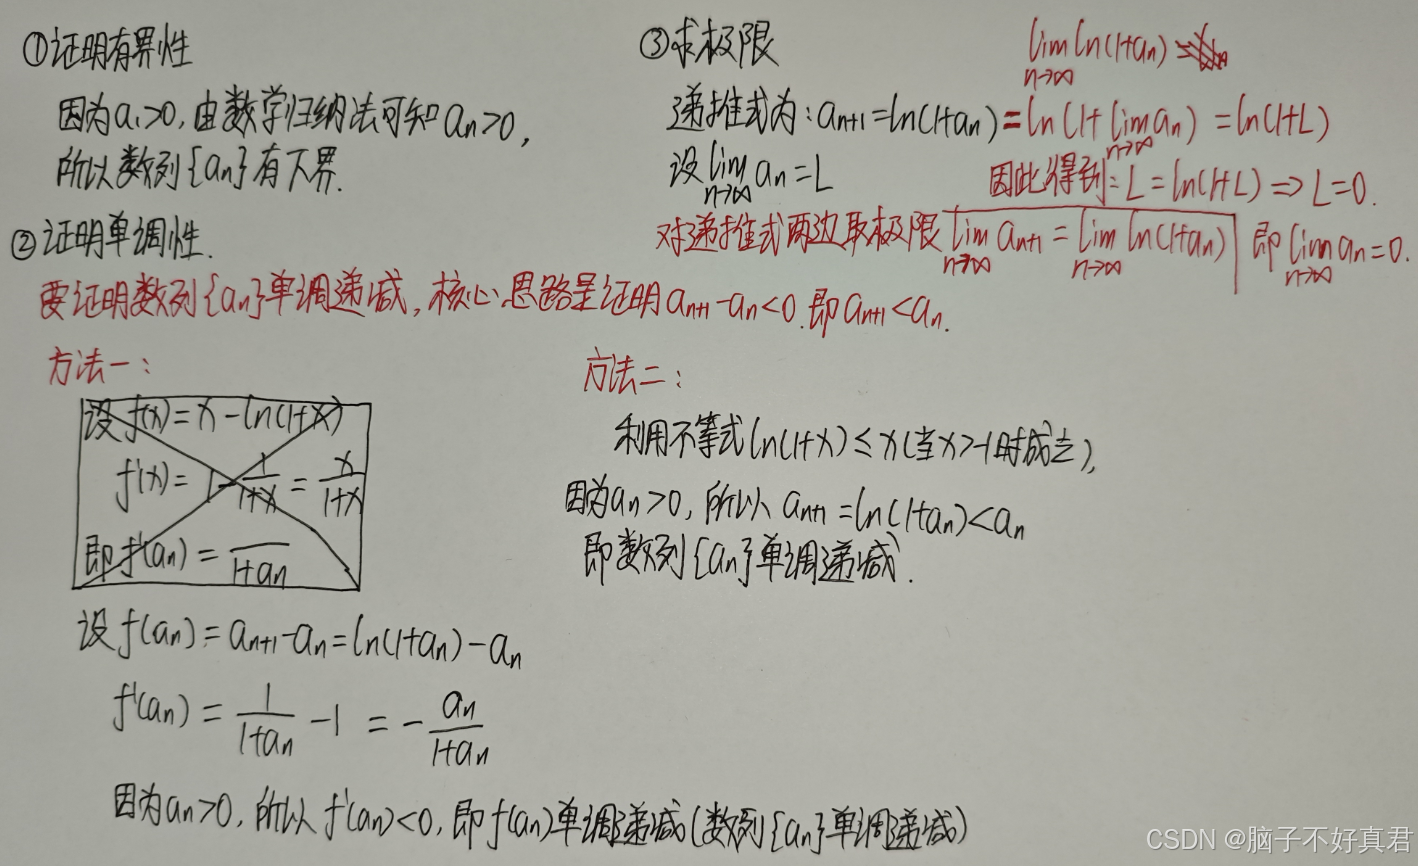 ①证明有界性
因为a₁>0,由数学归纳法可知aₙ>0,
所以数列{aₙ}有下界.
②证明单调性.
要证明数列{aₙ}单调递减,核心思路是证明aₙ₊₁-aₙ<0.即aₙ₊₁<aₙ.
方法一:
设f(x)=x-ln(1+x)
f'(x)=1-1/(1+x)=x/(1+x)
即f'(aₙ)=—/(1+aₙ)
设f(aₙ)=aₙ₊₁-aₙ=ln(1+aₙ)-aₙ
f'(aₙ)=1/(1+aₙ)-1=-aₙ/(1+aₙ)
因为aₙ>0,所以f'(aₙ)<0,即f(aₙ)单调递减(数列{aₙ}单调递减)
方法二:
利用不等式ln(1+x)≤x(当x>-1时成立),
因为aₙ>0,所以aₙ₊₁=ln(1+aₙ)<aₙ
即数列{aₙ}单调递减.
③求极限
lim n→∞ ln(1+aₙ)=
递推式为:aₙ₊₁=ln(1+aₙ)=ln(1+lim n→∞ aₙ)=ln(1+L)
设lim n→∞ aₙ=L
因此得到:L=ln(1+L)⇒L=0.
对递推式两边取极限 lim n→∞ aₙ₊₁=lim n→∞ ln(1+aₙ)
即lim n→∞ aₙ=0.
CSDN @脑子不好真君